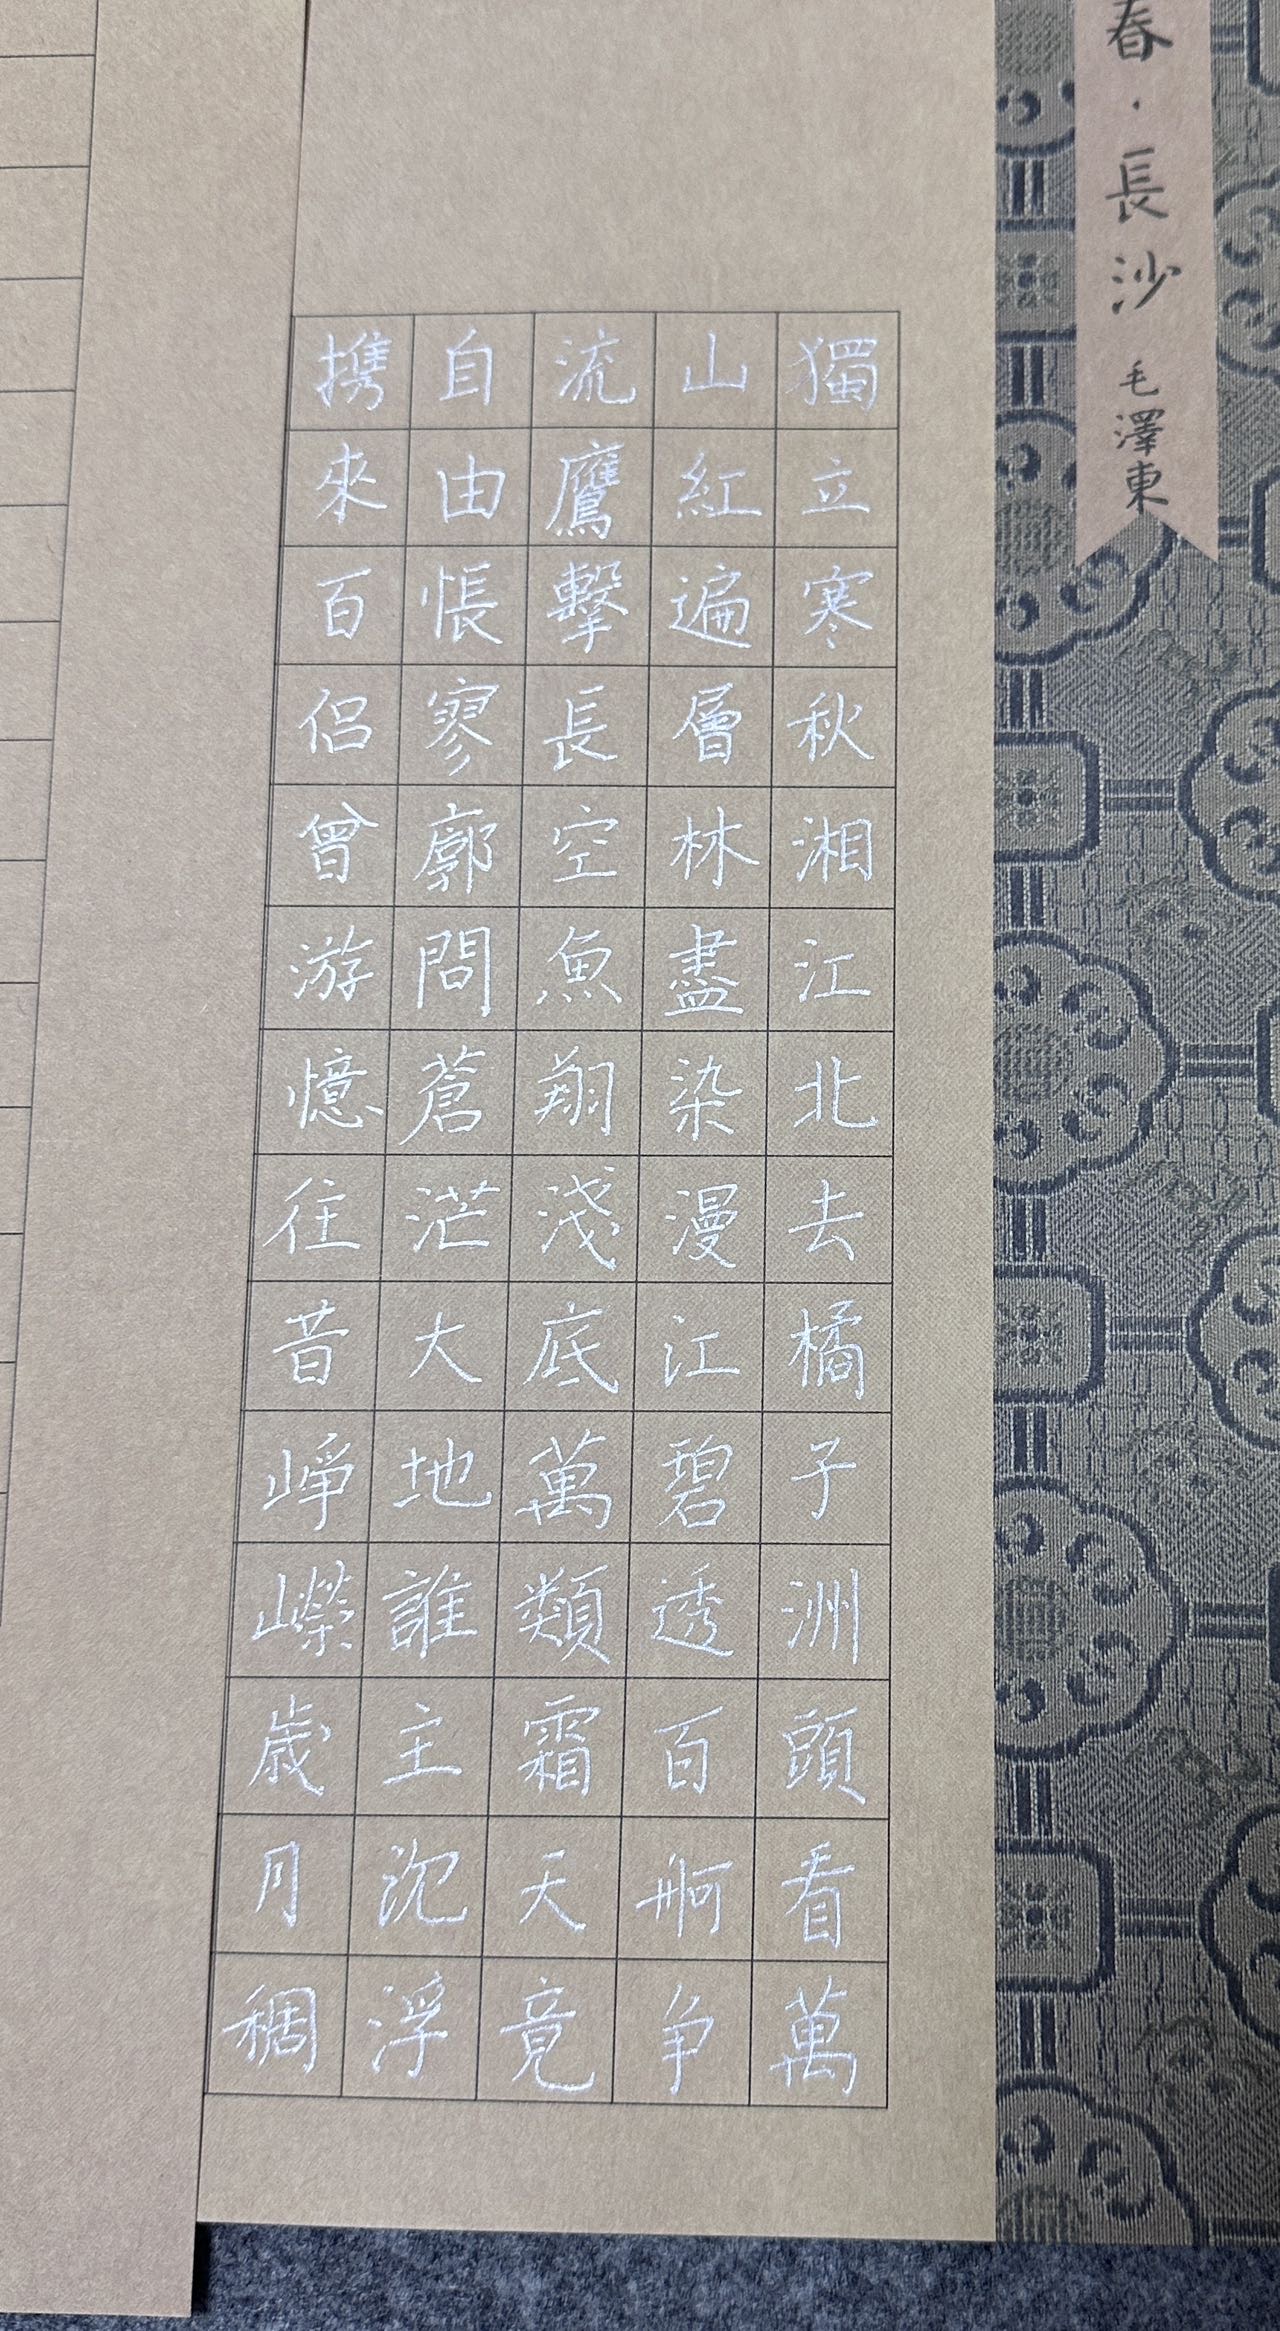 春·長沙 毛澤東
獨立寒秋湘江北去橘子洲頭看萬
山紅遍層林盡染漫江碧透百舸争
流鷹擊長空魚翔淺底萬類霜天竟
自由悵寥廓問蒼茫大地誰主沉浮
携來百侣曾游憶往昔崢嶸歲月稠